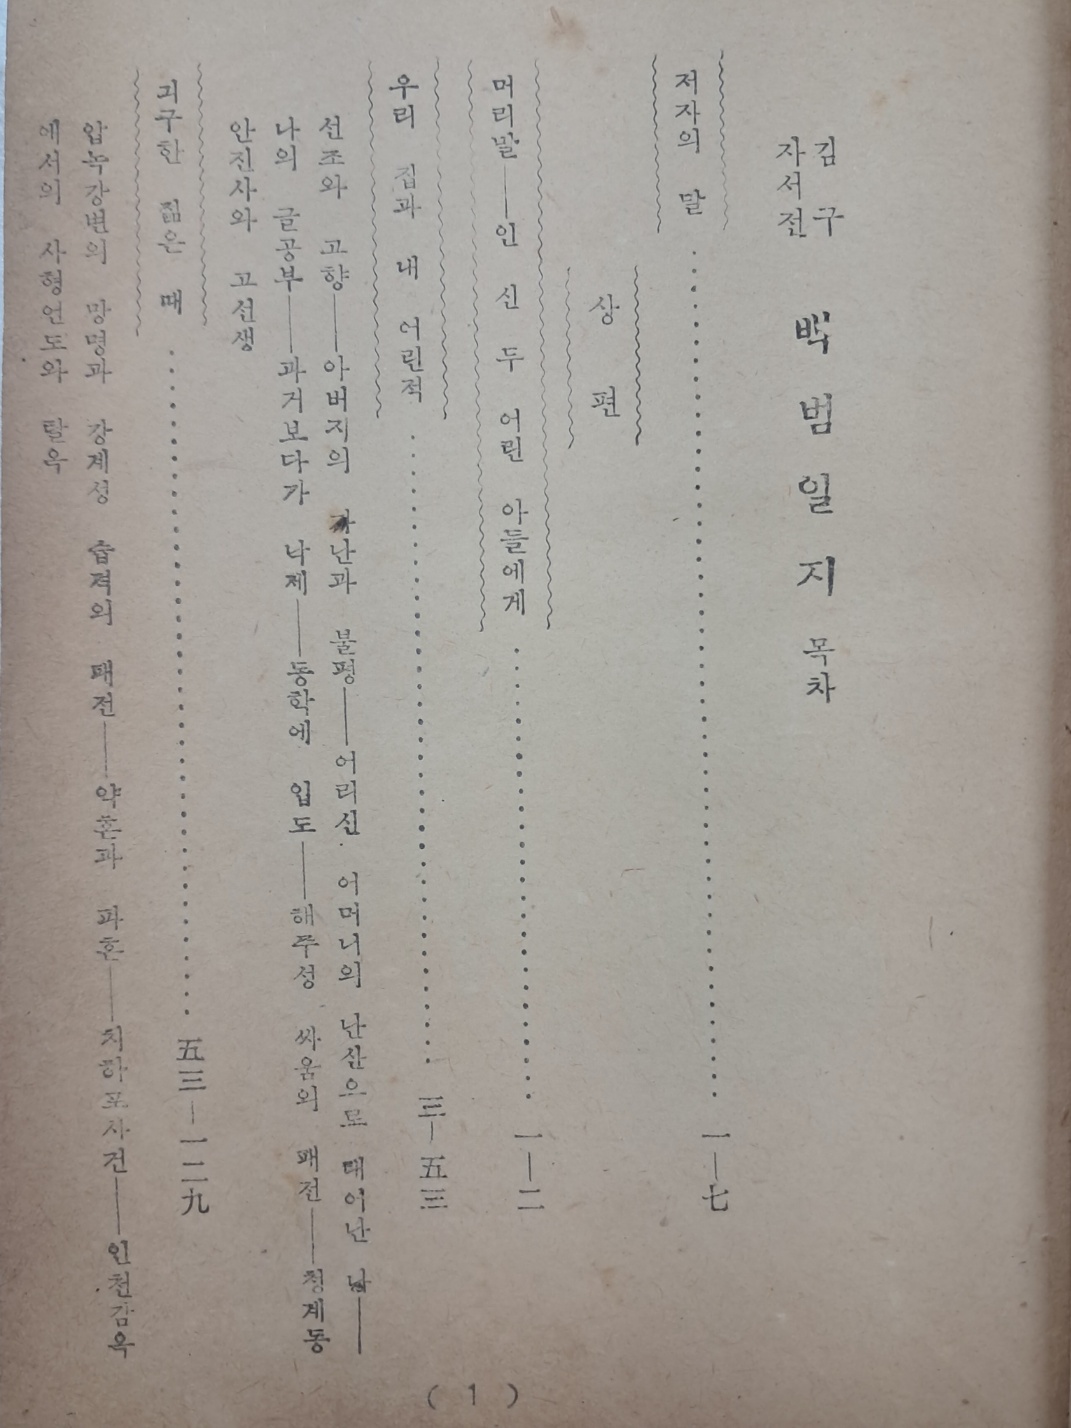 김구 자서전 백범일지 목차
저자의 말 …… 一—七
상편
머리말——인 신 두 어린 아들에게 …… 一—二
우리 집과 내 어린적 …… 三—五三
선조와 고향——아버지의 가난과 불평——어리신 어머니의 난산으로 태어난 나——
나의 글공부——과거보다가 낙제——동학에 입도——해주성 싸움의 패전——청계동
안진사와 고선생
긔구한 젊은 때 …… 五三—一二九
압녹강변의 망명과 강계성 습격의 패전——약혼과 파혼——치하포사건——인천감옥
에서의 사형언도와 탈옥
( 1 )